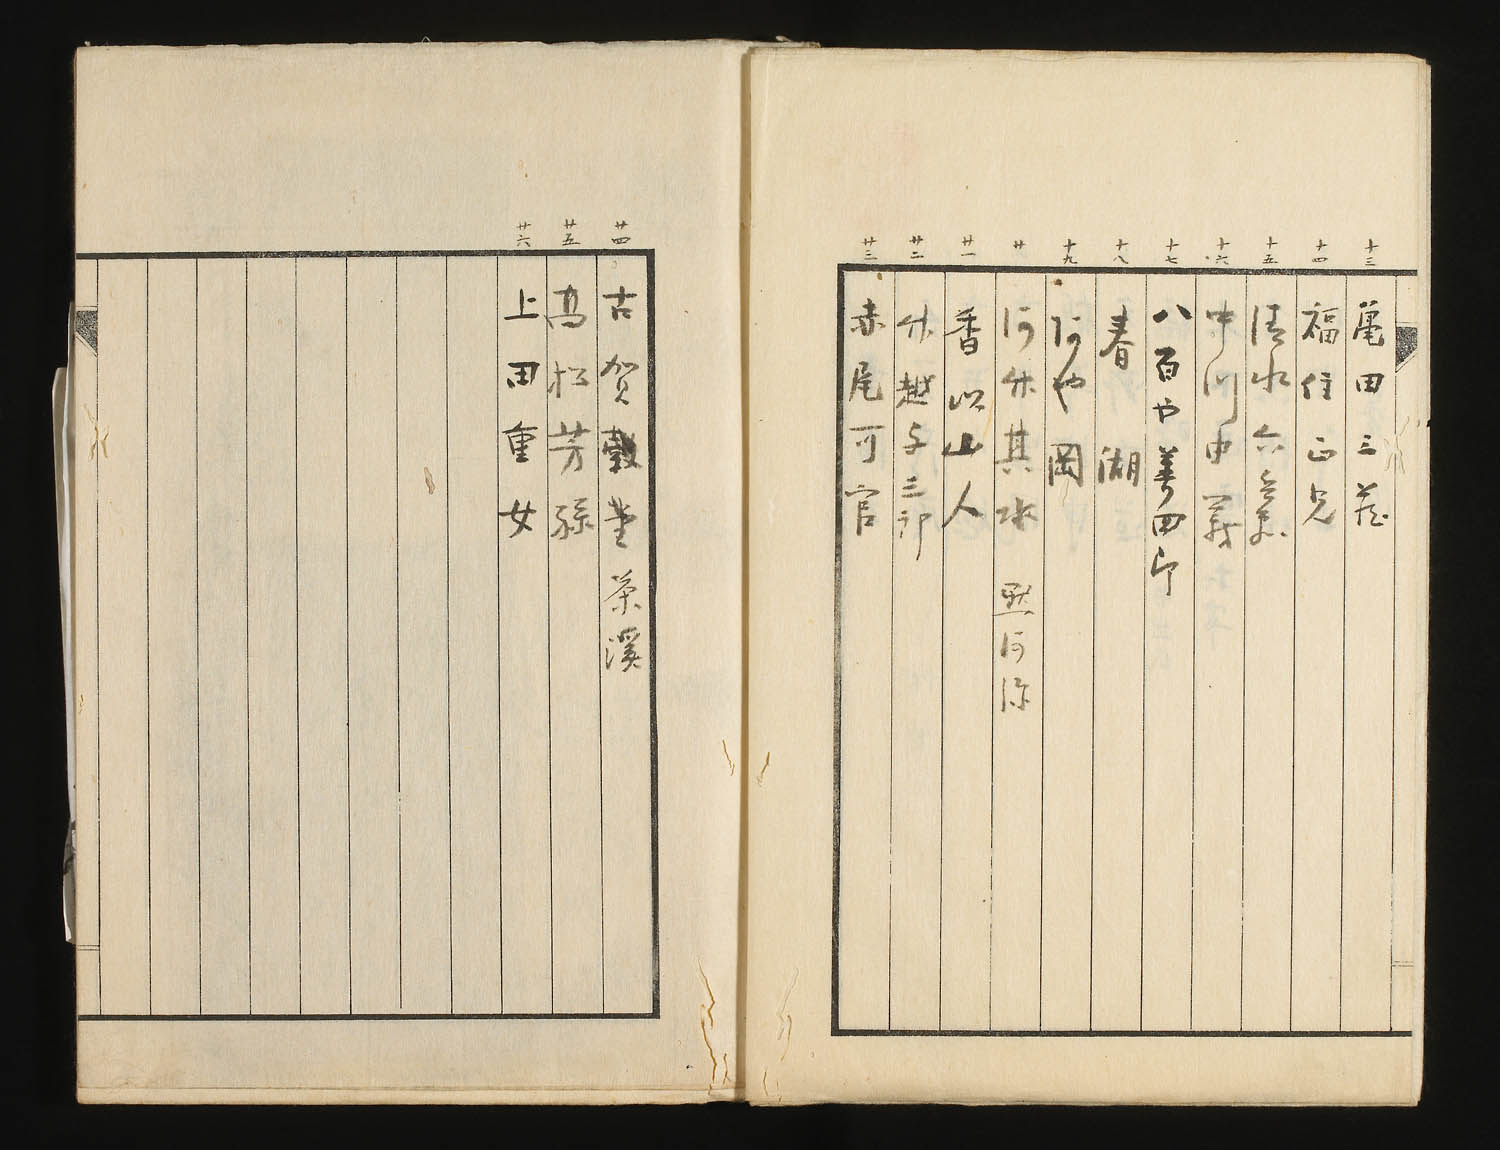 十三 亀田三蔵
十四 福住正兄
十五 清水六兵衛
十六 中川由義
十七 八百や善四郎
十八 春湖
十九 阿や岡
廿 河竹其水 黙阿弥
廿一 香以山人
廿二 竹越与三郎
廿三 赤尾可官
廿四 古賀穀堂 茶溪
廿五 高松芳孫
廿六 上田重女